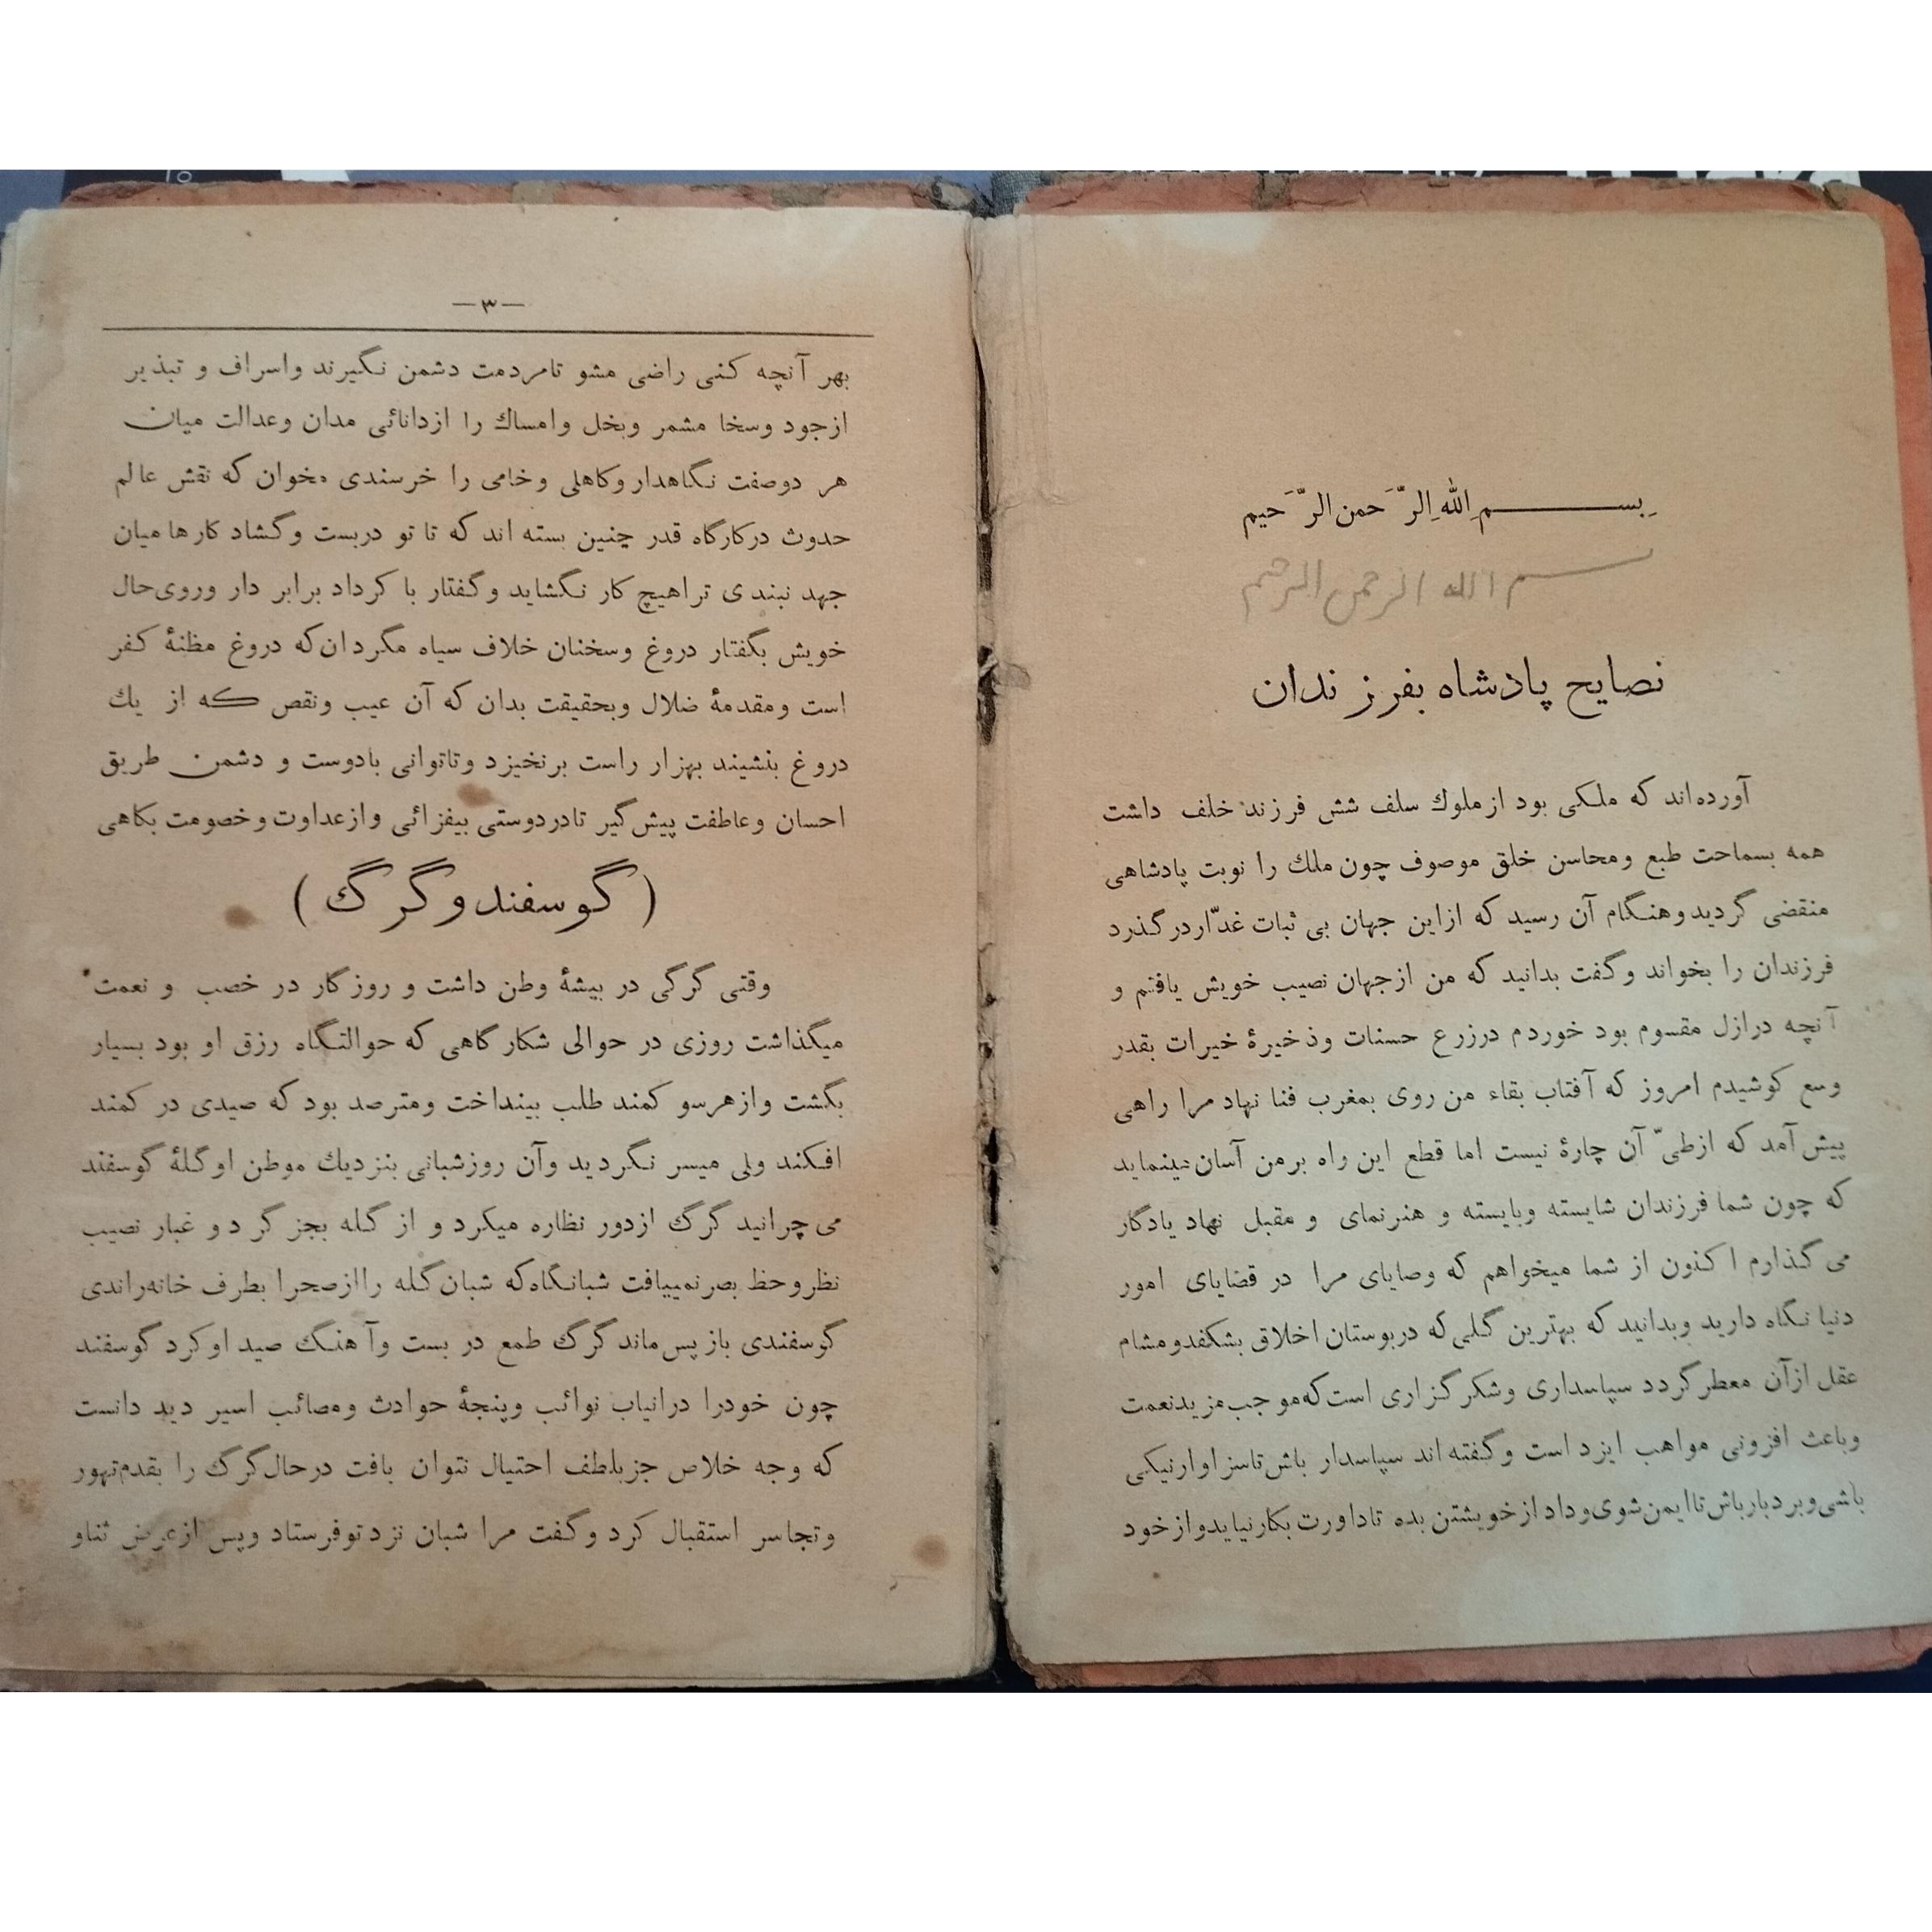 بِسم اللهِ الرَّحمن الرَّحيم
بسم الله الرحمن الرحیم
نصایح پادشاه بفرزندان
آورده‌اند که ملکی بود از ملوك سلف شش فرزند خلف داشت
همه بسماحت طبع ومحاسن خلق موصوف چون ملك را نوبت پادشاهی
منقضی گردید وهنگام آن رسید که ازاین جهان بی ثبات غدّار درگذرد
فرزندان را بخواند وگفت بدانید که من ازجهان نصیب خویش یافتم و
آنچه درازل مقسوم بود خوردم درزرع حسنات وذخیرهٔ خیرات بقدر
وسع کوشیدم امروز که آفتاب بقاء من روی بمغرب فنا نهاد مرا راهی
پیش آمد که ازطیّ آن چارهٔ نیست اما قطع این راه برمن آسان مینماید
که چون شما فرزندان شایسته وبایسته و هنرنمای و مقبل نهاد یادگار
می گذارم اکنون از شما میخواهم که وصایای مرا در قضایای امور
دنیا نگاه دارید وبدانید که بهترین گلی که دربوستان اخلاق بشکفد ومشام
عقل ازآن معطر گردد سپاسداری وشکرگزاری است که موجب مزید نعمت
وباعث افزونی مواهب ایزد است وگفته اند سپاسدار باش تاسزاوار نیکی
باشی وبردبار باش تاایمن شوی وداد ازخویشتن بده تاداورت بکار نیاید وازخود
—۳—
بهر آنچه کنی راضی مشو تامردمت دشمن نگیرند واسراف و تبذیر
ازجود وسخا مشمر وبخل وامساك را ازدانائی مدان وعدالت میان
هر دوصفت نگاهدار وکاهلی وخامی را خرسندی مخوان که نقش عالم
حدوث درکارگاه قدر چنین بسته اند که تا تو دربست وگشاد کارها میان
جهد نبندی تراهیچ کار نگشاید وگفتار با کرداد برابر دار وروی حال
خویش بگفتار دروغ وسخنان خلاف سیاه مگردان که دروغ مظنهٔ کفر
است ومقدمهٔ ضلال وبحقیقت بدان که آن عیب ونقص که از یك
دروغ بنشیند بهزار راست برنخیزد وتاتوانی بادوست و دشمن طریق
احسان وعاطفت پیش گیر تادردوستی بیفزائی وازعداوت وخصومت بکاهی
( گوسفند و گرگ )
وقتی گرگی در بیشهٔ وطن داشت و روزگار در خصب و نعمت
میگذاشت روزی در حوالی شکارگاهی که حوالتگاه رزق او بود بسیار
بگشت وازهرسو کمند طلب بینداخت ومترصد بود که صیدی در کمند
افکند ولی میسر نگردید وآن روزشبانی بنزدیك موطن اوگلهٔ گوسفند
می چرانید گرگ ازدور نظاره میکرد و از گله بجز گرد و غبار نصیب
نظر وحظ بصر نمییافت شبانگاه که شبان گله راازصحرا بطرف خانه راندی
گوسفندی بازپس ماند گرگ طمع در بست وآهنگ صید اوکرد گوسفند
چون خودرا درانیاب نوائب وپنجهٔ حوادث ومصائب اسیر دید دانست
که وجه خلاص جزبلطف احتیال نتوان یافت درحال گرگ را بقدم تهور
وتجاسر استقبال کرد وگفت مرا شبان نزد توفرستاد وپس از ثناو